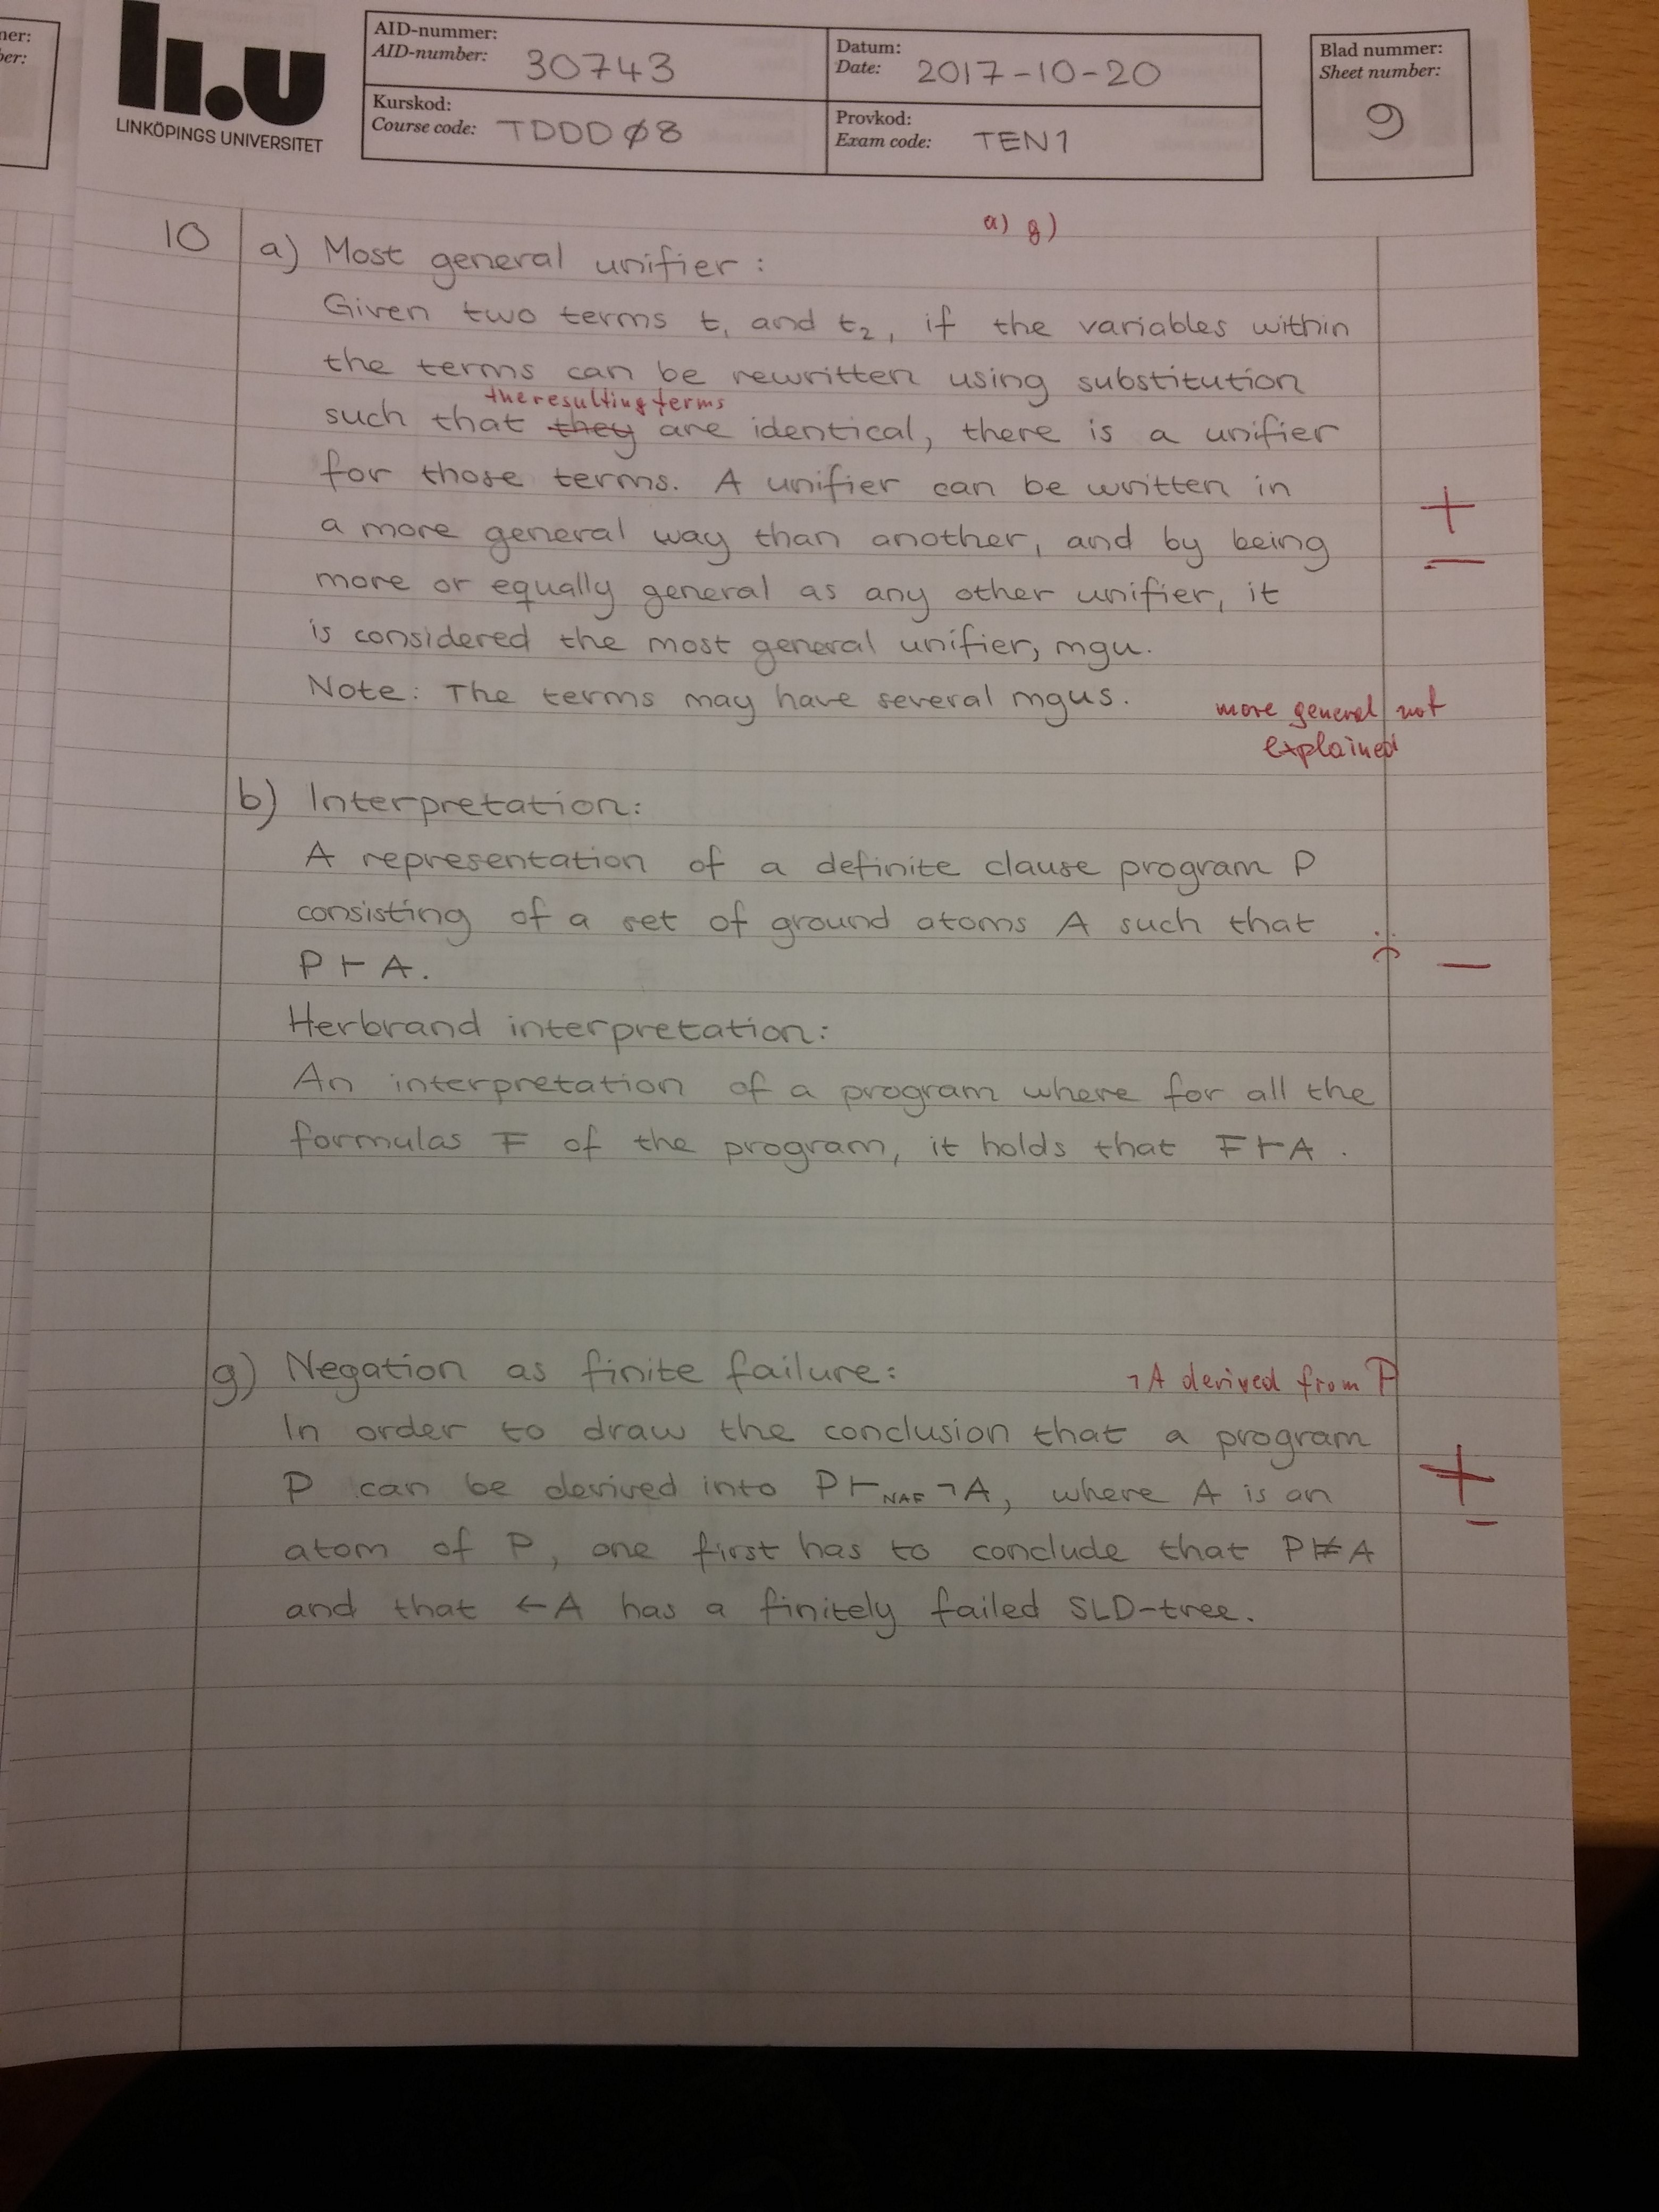 ner:
ber:
li.u
LINKÖPINGS UNIVERSITET
AID-nummer:
AID-number: 30743
Datum:
Date: 2017-10-20
Kurskod:
Course code: TDDDØ8
Provkod:
Exam code: TEN1
Blad nummer:
Sheet number:
9
a) g)
10 a) Most general unifier:
Given two terms t₁ and t₂, if the variables within
the terms can be rewritten using substitution
the resulting terms
such that they are identical, there is a unifier
for those terms. A unifier can be written in
a more general way than another, and by being
+
−
more or equally general as any other unifier, it
is considered the most general unifier, mgu.
Note: The terms may have several mgus.
more general not
explained
b) Interpretation:
A representation of a definite clause program P
consisting of a set of ground atoms A such that
P ⊢ A.
−
Herbrand interpretation:
An interpretation of a program where for all the
formulas F of the program, it holds that F ⊢ A.
g) Negation as finite failure:
¬A derived from P
In order to draw the conclusion that a program
P can be derived into P ⊢NAF ¬A, where A is an
+
−
atom of P, one first has to conclude that P ⊭ A
and that ← A has a finitely failed SLD-tree.